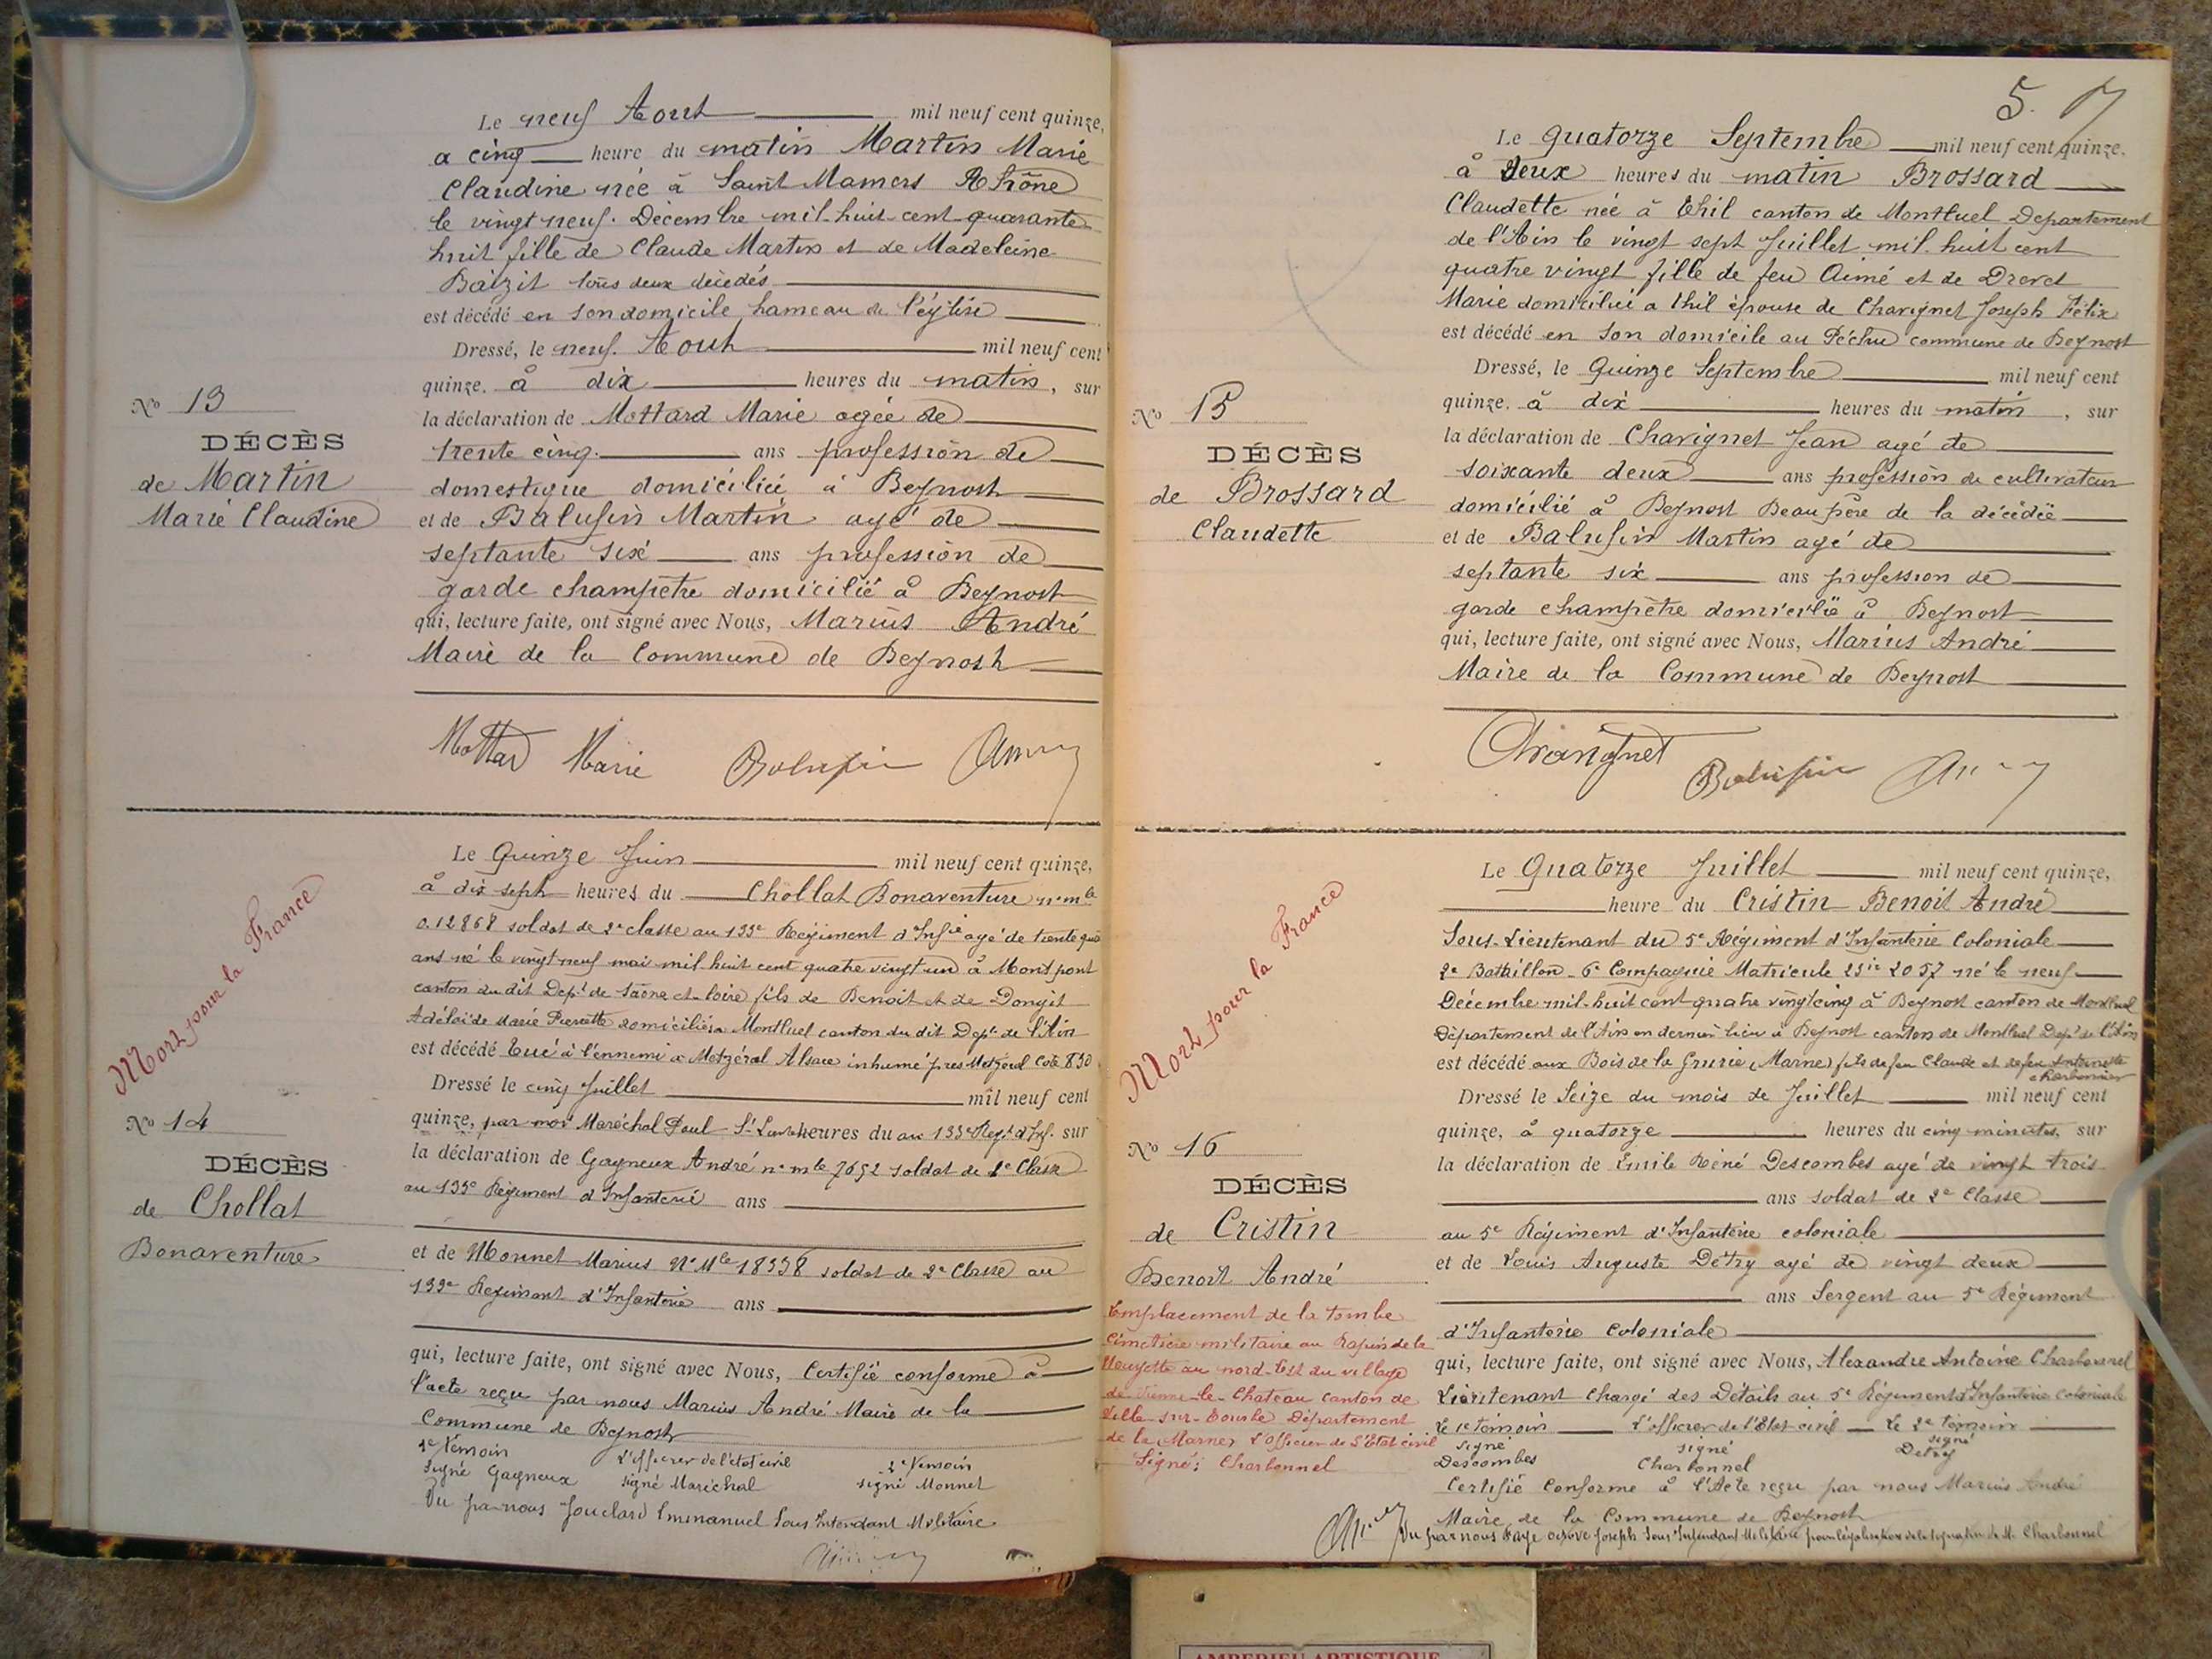 Le neuf Aout mil neuf cent quinze,
a cinq heure du matin Martin Marie
Claudine née à Saint Mamers Rhône
le vingt neuf. Décembre mil huit cent quarante
huit fille de Claude Martin et de Madeleine
Baizit tous deux décédés
est décédé en son domicile hameau de l'église
Dressé, le neuf. Aout mil neuf cent
quinze. à dix heures du matin, sur
la déclaration de Mottard Marie agée de
trente cinq. ans profession de
domestique domiciliée à Beynost
et de Balufin Martin agé de
septante six ans profession de
garde champêtre domicilié à Beynost
qui, lecture faite, ont signé avec Nous, Marius André
Maire de la Commune de Beynost
No 13
DÉCÈS
de Martin
Marie Claudine
Mottard Marie Balufin
Le Quinze Juin mil neuf cent quinze,
à dix sept heures du Chollat Bonaventure n° mle
0.12868 soldat de 2e classe au 133e Régiment d'Infie agé de trente
ans né le vingt neuf mai mil huit cent quatre vingt un à Montpont
canton du dit Dept de Saône et Loire fils de Benoit et de Dongit
Adélaïde Marie Pierrette domiciliés a Montluel canton du dit Dept de l'Ain
est décédé tué à l'ennemi à Metzéral Alsace inhumé près Metzeral Cote 830
Dressé le cinq Juillet mil neuf cent
quinze, par moi Maréchal Paul heures du au 133e Regt d'Inf. sur
la déclaration de Gagneux André n° mle 7652 soldat de 2e Classe
au 133e Régiment d'Infanterie ans
et de Monnet Marius N° Mle 18338 soldat de 2e Classe au
133e Regiment d'Infanterie ans
qui, lecture faite, ont signé avec Nous, Certifié conforme à
l'acte reçu par nous Marius André Maire de la
Commune de Beynost
Témoin L'officier de l'état civil Témoin
Signé Gagneux signé Maréchal signé Monnet
Vu par nous Jouclard Emmanuel Sous Intendant Militaire
Mort pour la France
No 14
DÉCÈS
de Chollat
Bonaventure
5.
Le quatorze Septembre mil neuf cent quinze.
à Deux heures du matin Brossard
Claudette née à Thil canton de Montluel Departement
de l'Ain le vingt sept Juillet mil huit cent
quatre vingt fille de feu Aimé et de Drevet
Marie domiciliée a Thil épouse de Chavignet Joseph Félix
est décédé en son domicile au Péchu commune de Beynost
Dressé, le Quinze Septembre mil neuf cent
quinze. à dix heures du matin, sur
la déclaration de Chavignet Jean agé de
soixante deux ans profession de cultivateur
domicilié à Beynost Beau père de la décédée
et de Balufin Martin agé de
septante six ans profession de
garde champêtre domicilié à Beynost
qui, lecture faite, ont signé avec Nous, Marius André
Maire de la Commune de Beynost
No 15
DÉCÈS
de Brossard
Claudette
Chavignet Balufin
Le Quatorze Juillet mil neuf cent quinze,
heure du Cristin Benoit André
Sous-Lieutenant du 5e Régiment d'Infanterie Coloniale
2e Bataillon - 6e Compagnie Matricule 2057 né le neuf
Décembre mil huit cent quatre vingt cinq à Beynost canton de Montluel
Département de l'Ain en dernier lieu à Beynost canton de Montluel Dept de l'Ain
est décédé aux Bois de la Grurie (Marne) fils de feu Claude et de feu Antoinette
Charbonnier
Dressé le Seize du mois de Juillet mil neuf cent
quinze, à quatorze heures du cinq minutes, sur
la déclaration de Emile Réné Descombes agé de vingt trois
ans soldat de 2e Classe
au 5e Régiment d'Infanterie coloniale
et de Louis Auguste Détry agé de vingt deux
ans Sergent au 5e Régiment
d'Infanterie Coloniale
qui, lecture faite, ont signé avec Nous, Alexandre Antoine Charbonnel
Lieutenant Chargé des Détails au 5e Régiment d'Infanterie Coloniale
Le 1e témoin L'officier de l'Etat civil Le 2e témoin
signé signé signé
Descombes Charbonnel Detry
Certifié Conforme à l'Acte reçu par nous Marius André
Maire de la Commune de Beynost
Vu par nous Faye Octove Joseph Sous Intendant Militaire pour légalisation de la signature de M. Charbonnel
Mort pour la France
No 16
DÉCÈS
de Cristin
Benoit André
Emplacement de la tombe
Cimetière militaire au Ravin de la
Houyette au nord-Est du village
de Vienne-le-Chateau canton de
Ville-sur-Tourbe Département
de la Marne, L'Officier de l'Etat civil
Signé: Charbonnel
AMBERIEU ARTISTIQUE